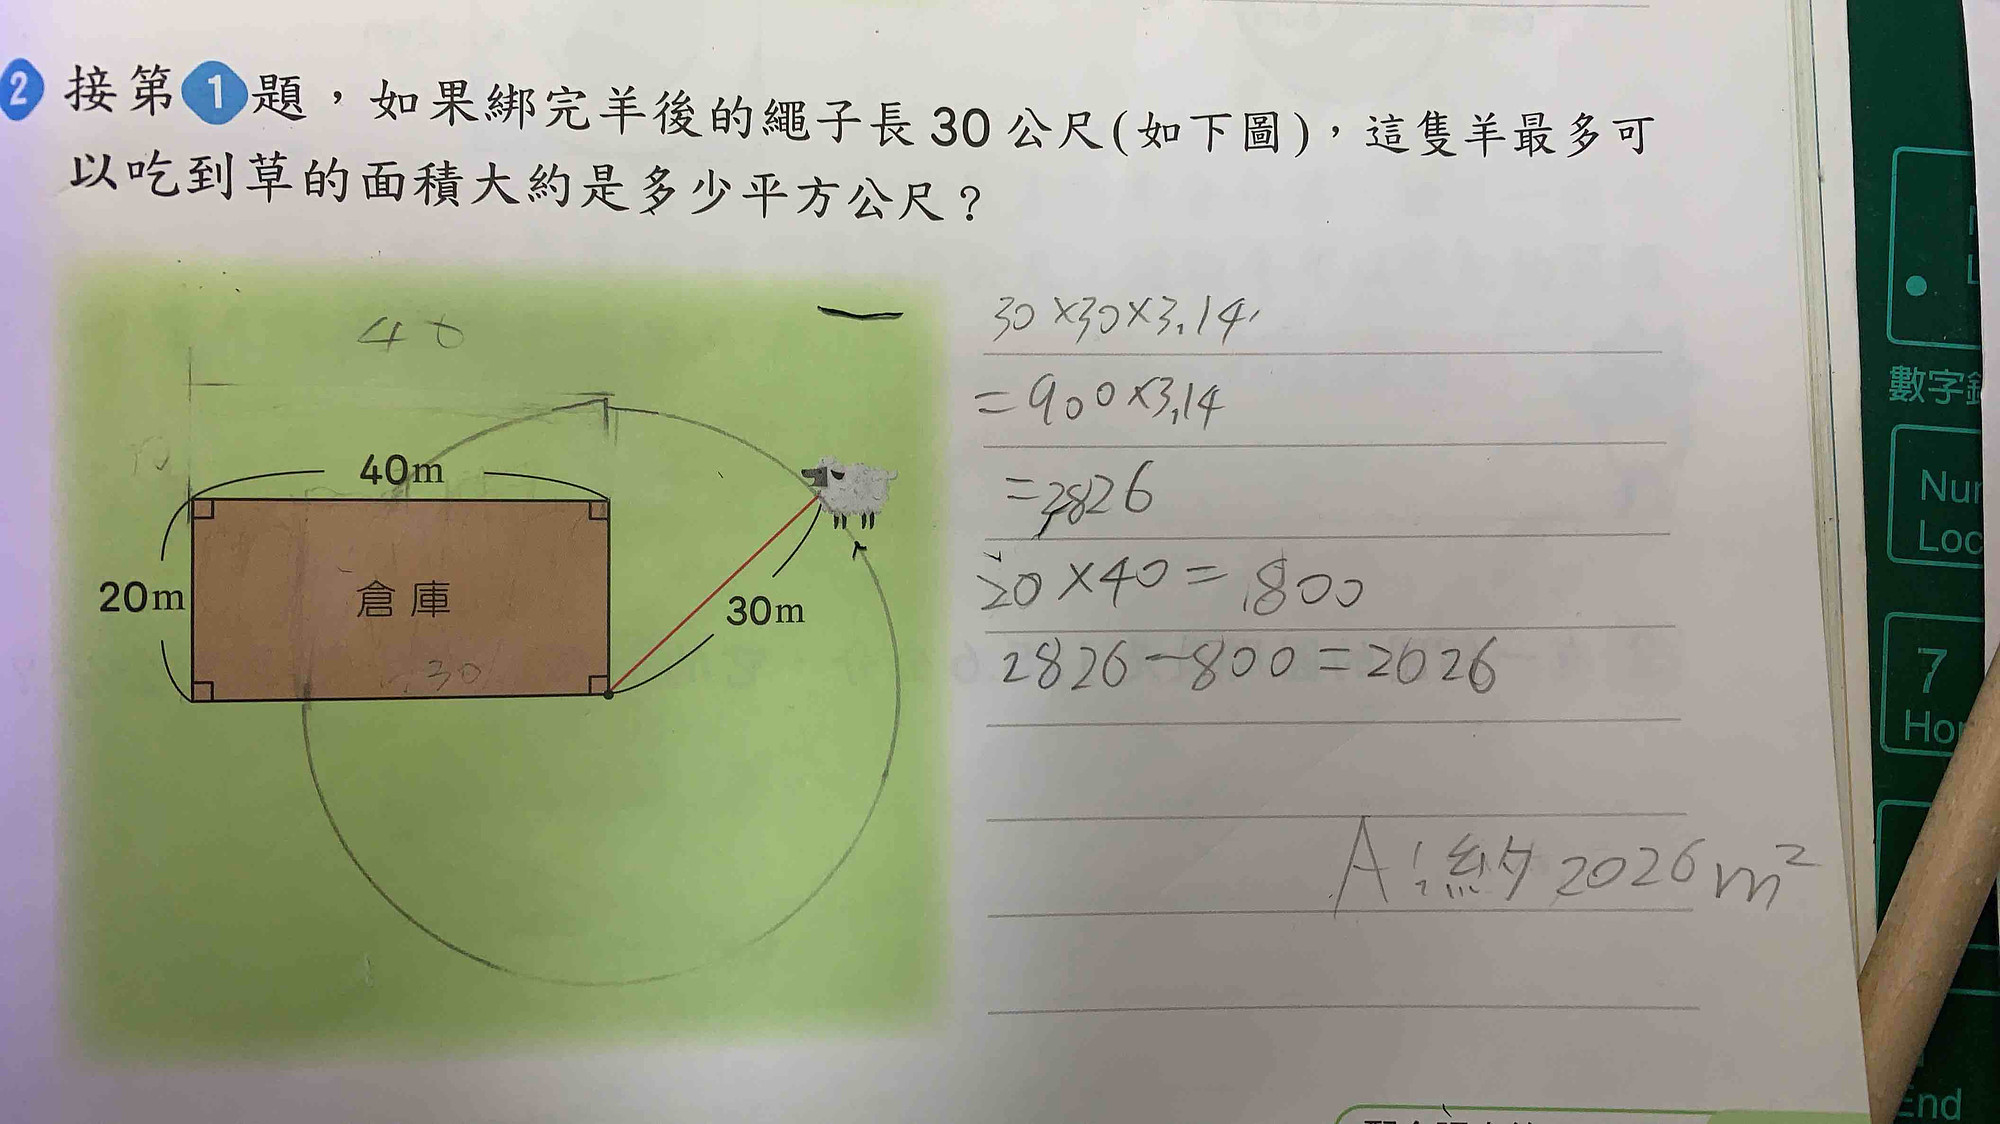 2 接第1題，如果綁完羊後的繩子長30公尺(如下圖)，這隻羊最多可
以吃到草的面積大約是多少平方公尺？
40
40m
20m
倉庫
30m
30
30×30×3.14
=900×3.14
=2826
20×40=800
2826-800=2026
A:約2026m²
數字鎖
Num
Loc
7
Hom
End